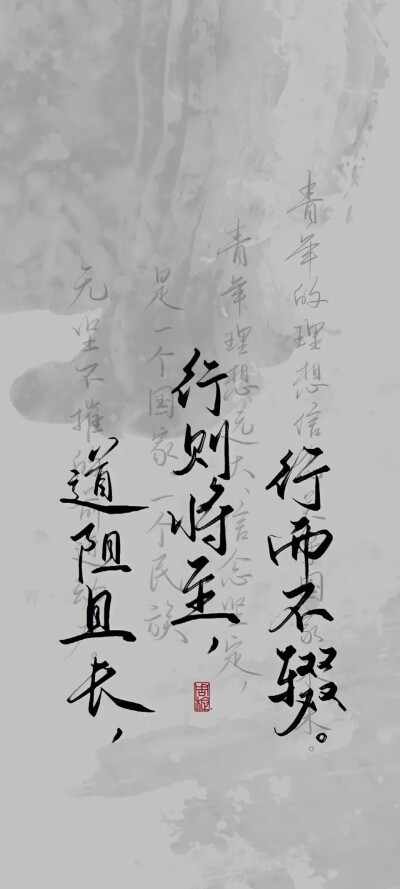 道阻且长，
行则将至，
行而不辍。
青年的理想信国家未来。
青年理想远大、信念坚定，
是一个国家、一个民族
无坚不摧